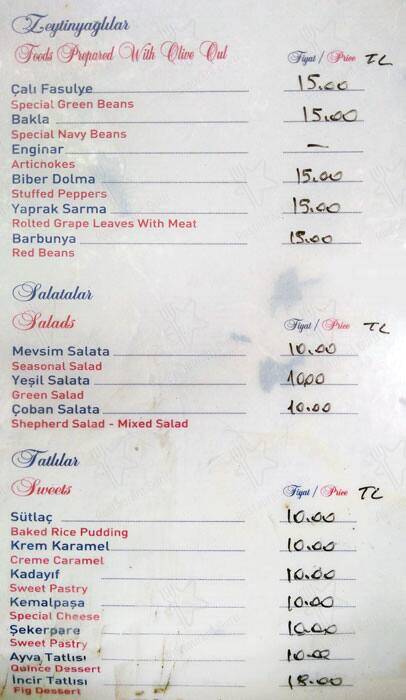 Zeytinyağlılar
Foods Prepared With Olive Oul Fiyat / Price TL
Çalı Fasulye 15.00
Special Green Beans
Bakla 15.00
Special Navy Beans
Enginar -
Artichokes
Biber Dolma 15.00
Stuffed Peppers
Yaprak Sarma 15.00
Rolted Grape Leaves With Meat
Barbunya 15.00
Red Beans
Salatalar
Salads Fiyat / Price TL
Mevsim Salata 10.00
Seasonal Salad
Yeşil Salata 10.00
Green Salad
Çoban Salata 10.00
Shepherd Salad - Mixed Salad
Tatlılar
Sweets Fiyat / Price TL
Sütlaç 10.00
Baked Rice Pudding
Krem Karamel 10.00
Creme Caramel
Kadayıf 10.00
Sweet Pastry
Kemalpaşa 10.00
Special Cheese
Şekerpare 10.00
Sweet Pastry
Ayva Tatlısı 10.00
Quince Dessert
İncir Tatlısı 18.00
Fig Dessert